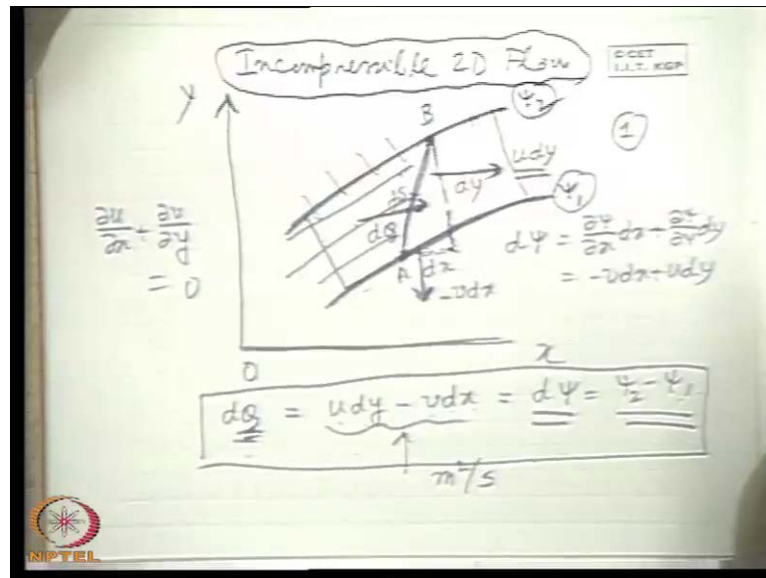 Incompressible 2D Flow
C CET
I.I.T. KGP
Y
B
ψ₂
1
udy
dy
ψ₁
ds
dQ
∂u/∂x + ∂v/∂y
= 0
A
dx
-vdx
dψ = ∂ψ/∂x dx + ∂ψ/∂y dy
= -vdx + udy
O
x
dQ = udy - vdx = dψ = ψ₂ - ψ₁
m²/s
NPTEL